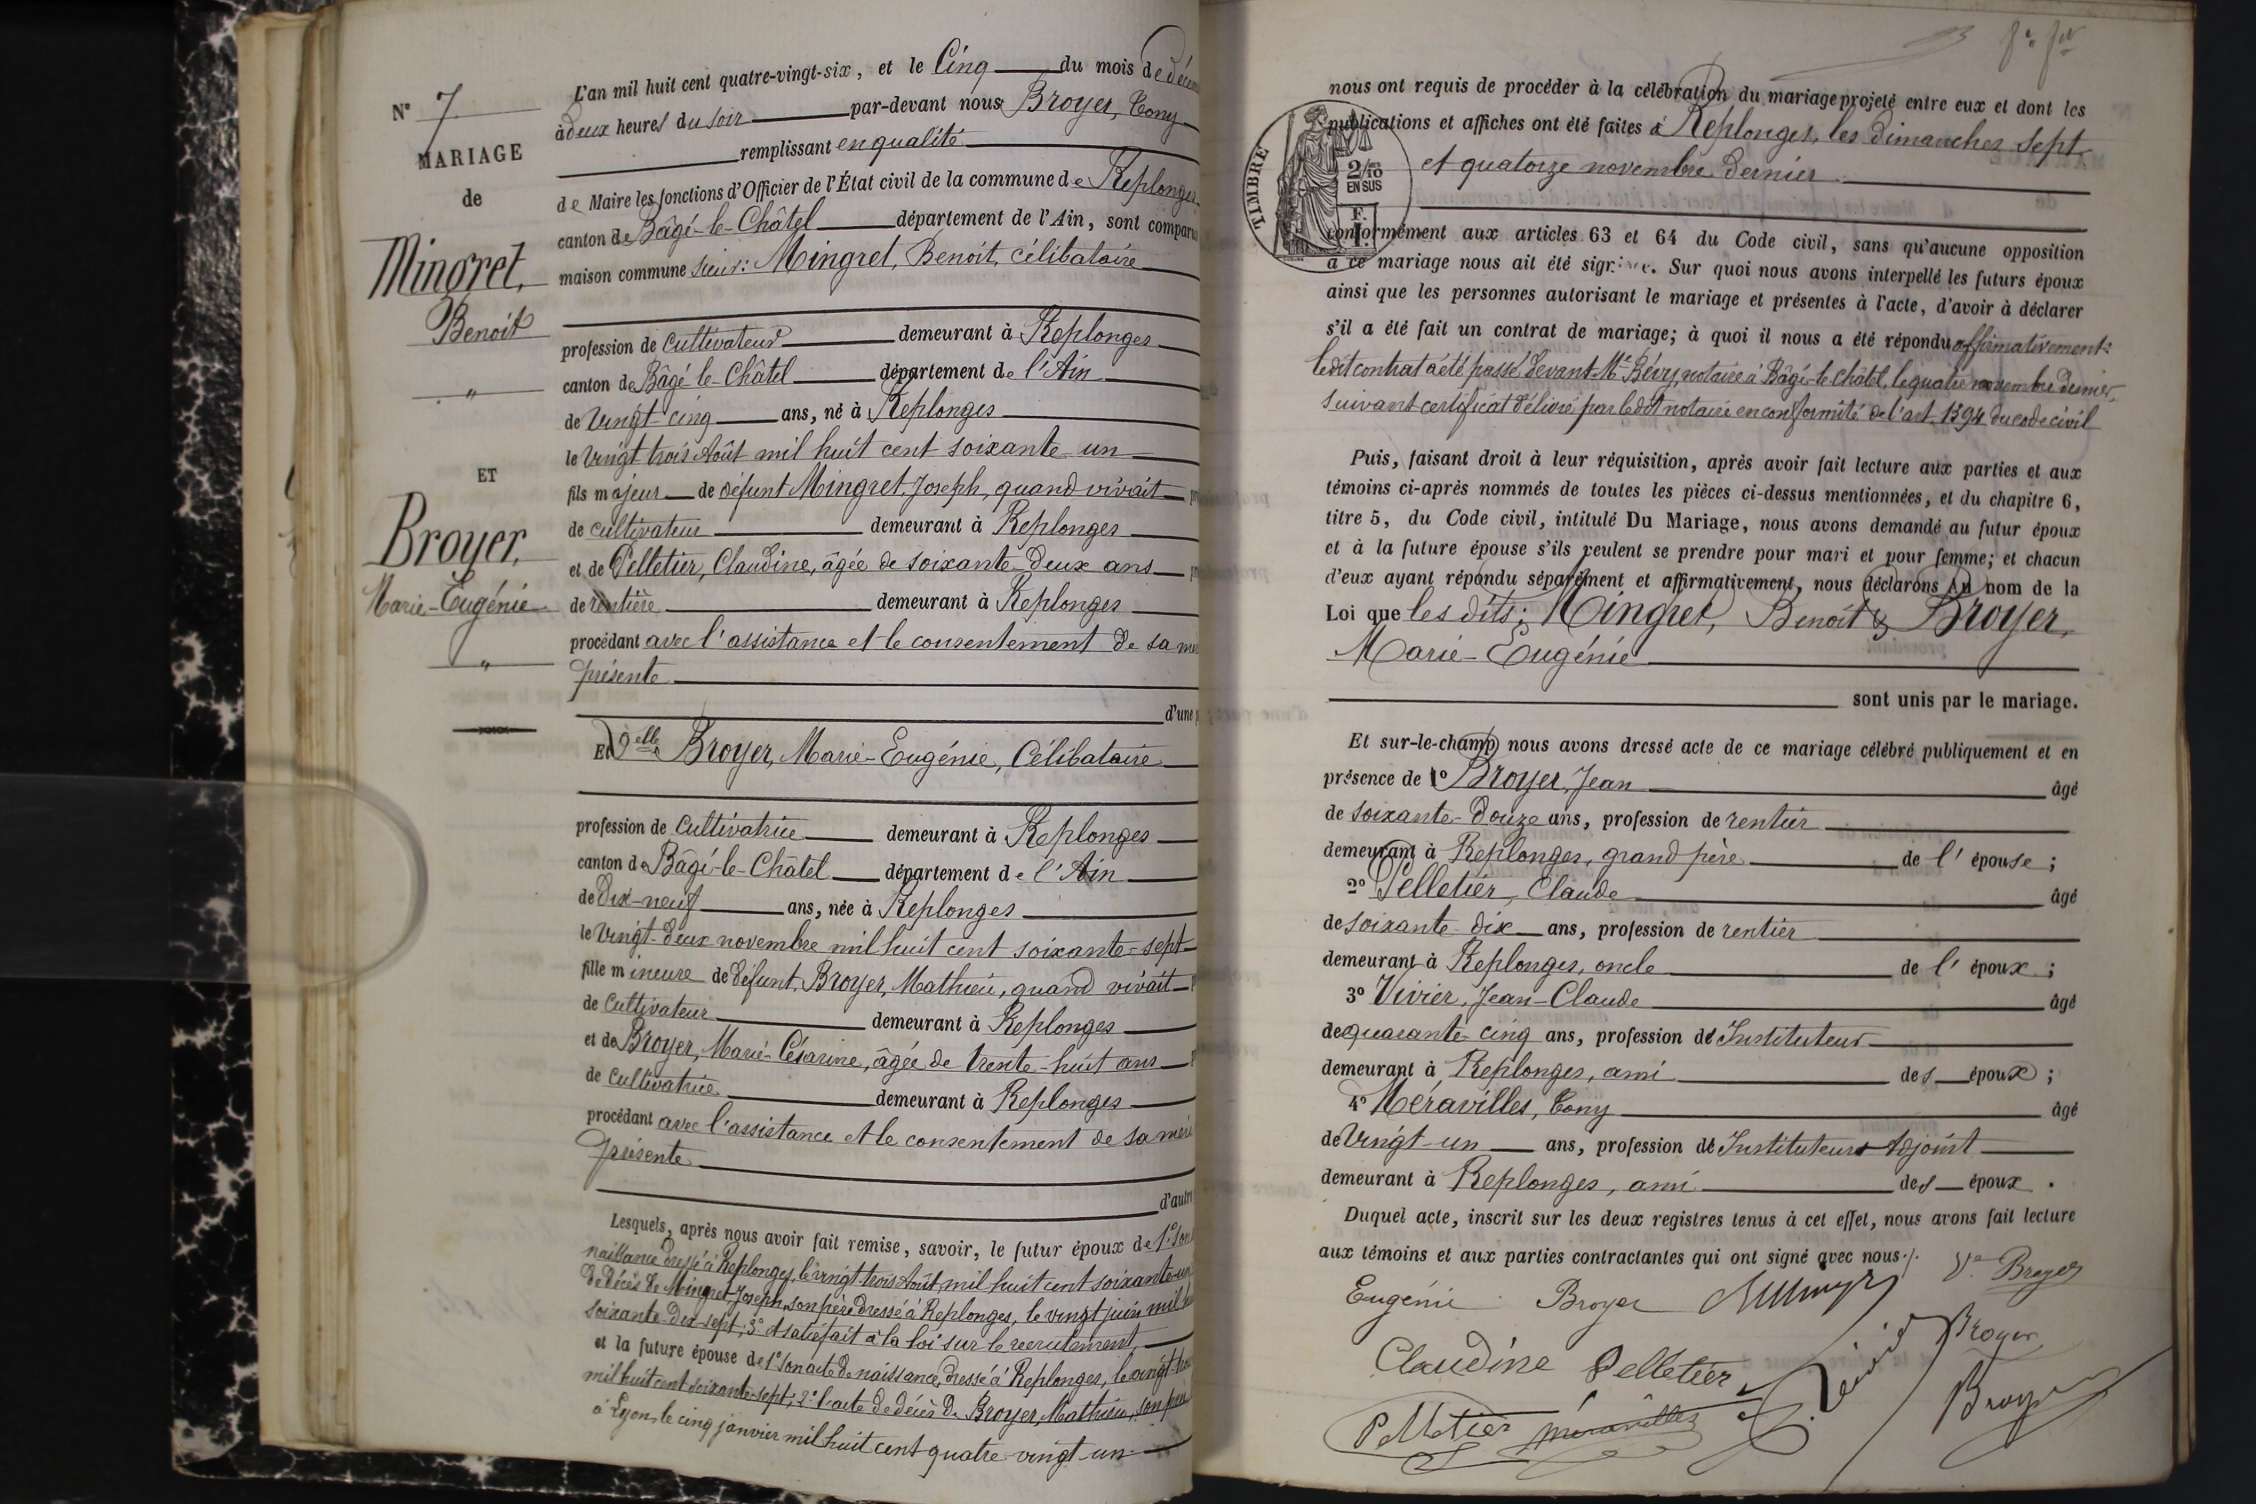 N° 7
MARIAGE
de
Mingret,
Benoît
"
ET
Broyer,
Marie-Eugénie
"
L'an mil huit cent quatre-vingt-six, et le Cinq du mois de décem
à deux heures du soir par-devant nous Broyer, Tony
remplissant en qualité
de Maire les fonctions d'Officier de l'État civil de la commune de Replonges
canton de Bâgé-le-Châtel département de l'Ain, sont comparu
maison commune sieur: Mingret, Benoît, célibataire
profession de cultivateur demeurant à Replonges
canton de Bâgé-le-Châtel département de l'Ain
de vingt-cinq ans, né à Replonges
le vingt trois Août mil huit cent soixante-un
fils majeur de défunt Mingret, Joseph, quand vivait
de cultivateur demeurant à Replonges
et de Pelletier, Claudine, âgée de soixante-deux ans
de rentière demeurant à Replonges
procédant avec l'assistance et le consentement de sa
présente
d'une
Et Delle Broyer, Marie-Eugénie, Célibataire
profession de cultivatrice demeurant à Replonges
canton de Bâgé-le-Châtel département de l'Ain
de Dix-neuf ans, née à Replonges
le vingt-deux novembre mil huit cent soixante-sept
fille mineure de défunt Broyer, Mathieu, quand vivait
de cultivateur demeurant à Replonges
et de Broyer, Marie-Césarine, âgée de trente-huit ans
de cultivatrice demeurant à Replonges
procédant avec l'assistance et le consentement de sa mère
présente
d'autre
Lesquels, après nous avoir fait remise, savoir, le futur époux de 1° son
naissance dressé à Replonges, le vingt trois Août mil huit cent soixante-un
de décès de Mingret, Joseph, son père dressé à Replonges, le vingt juin mil
soixante-dix-sept; 3° A satisfait à la loi sur le recrutement,
et la future épouse de 1° son acte de naissance, dressé à Replonges, le vingt-
mil huit cent soixante-sept; 2° l'acte de décès de Broyer, Mathieu, son père
à Lyon, le cinq janvier mil huit cent quatre-vingt-un
nous ont requis de procéder à la célébration du mariage projeté entre eux et dont les
publications et affiches ont été faites à Replonges, les dimanches sept
et quatorze novembre dernier
TIMBRE
2/10
EN SUS
F.
conformément aux articles 63 et 64 du Code civil, sans qu'aucune opposition
à ce mariage nous ait été signifiée. Sur quoi nous avons interpellé les futurs époux
ainsi que les personnes autorisant le mariage et présentes à l'acte, d'avoir à déclarer
s'il a été fait un contrat de mariage; à quoi il nous a été répondu affirmativement:
le dit contrat a été passé devant Me Bévy, notaire à Bâgé-le-Châtel, le quatre novembre dernier,
suivant certificat délivré par le dit notaire en conformité de l'art. 1394 du code civil
Puis, faisant droit à leur réquisition, après avoir fait lecture aux parties et aux
témoins ci-après nommés de toutes les pièces ci-dessus mentionnées, et du chapitre 6,
titre 5, du Code civil, intitulé Du Mariage, nous avons demandé au futur époux
et à la future épouse s'ils veulent se prendre pour mari et pour femme; et chacun
d'eux ayant répondu séparément et affirmativement, nous déclarons Au nom de la
Loi que les dits: Mingret, Benoît & Broyer,
Marie-Eugénie
sont unis par le mariage.
Et sur-le-champ nous avons dressé acte de ce mariage célébré publiquement et en
présence de 1° Broyer, Jean âgé
de soixante-douze ans, profession de rentier
demeurant à Replonges, grand père de l'épouse;
2° Pelletier, Claude âgé
de soixante-dix ans, profession de rentier
demeurant à Replonges, oncle de l'époux;
3° Vivier, Jean-Claude âgé
de quarante-cinq ans, profession de Instituteur
demeurant à Replonges, ami des époux;
4° Méravilles, Tony âgé
de vingt-un ans, profession de Instituteur Adjoint
demeurant à Replonges, ami des époux.
Duquel acte, inscrit sur les deux registres tenus à cet effet, nous avons fait lecture
aux témoins et aux parties contractantes qui ont signé avec nous./.
Ve Broyer
Eugénie Broyer
Broyer
Claudine Pelletier
Broyer
Pelletier Méravilles